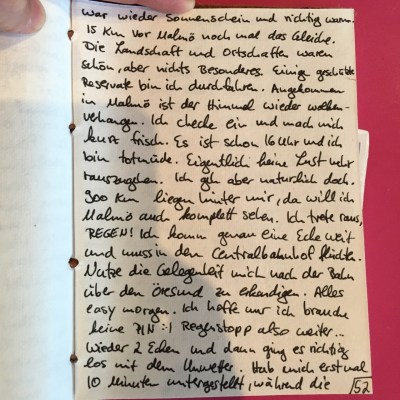 war wieder Sonnenschein und richtig warm.
15 Km vor Malmö noch mal das Gleiche.
Die Landschaft und Ortschaften waren
schön, aber nichts Besonderes. Einige geschützte
Reservate bin ich durchfahren. Angekommen
in Malmö ist der Himmel wieder wolken-
verhangen. Ich checke ein und mach mich
kurz frisch. Es ist schon 16 Uhr und ich
bin totmüde. Eigentlich keine Lust mehr
rauszugehen. Ich geh aber natürlich doch.
900 Km liegen hinter mir, da will ich
Malmö auch komplett sehen. Ich trete raus,
REGEN! Ich komm genau eine Ecke weit
und muss in den Centralbahnhof flüchten.
Nutze die Gelegenheit mich nach der Bahn
über den Öresund zu erkundigen. Alles
easy morgen. Ich hoffe nur ich brauche
keine PIN :) Regenstopp also weiter...
Wieder 2 Ecken und dann ging es richtig
los mit dem Unwetter. Hab mich erstmal
10 Minuten untergestellt, während die
/52